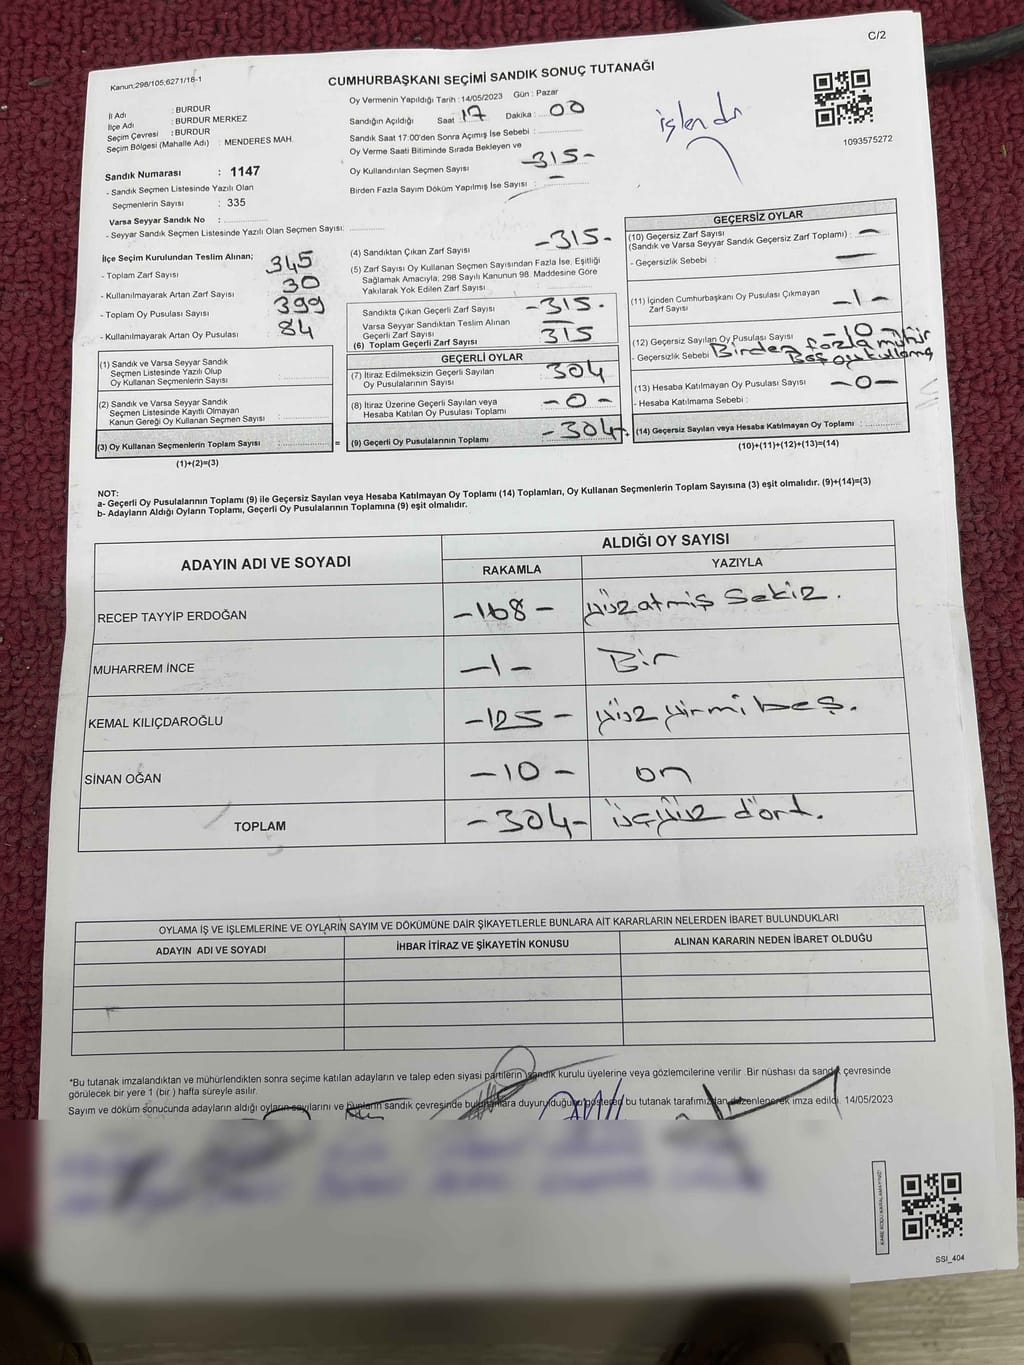 C/2
Kanun:298/105,6271/18-1
CUMHURBAŞKANI SEÇİMİ SANDIK SONUÇ TUTANAĞI
İl Adı : BURDUR
İlçe Adı : BURDUR MERKEZ
Seçim Çevresi : BURDUR
Seçim Bölgesi (Mahalle Adı) : MENDERES MAH.
Sandık Numarası : 1147
- Sandık Seçmen Listesinde Yazılı Olan
Seçmenlerin Sayısı : 335
Varsa Seyyar Sandık No :
- Seyyar Sandık Seçmen Listesinde Yazılı Olan Seçmen Sayısı:
Oy Vermenin Yapıldığı Tarih : 14/05/2023 Gün : Pazar
Sandığın Açıldığı Saat : 17 Dakika : 00
Sandık Saat 17:00'den Sonra Açımış İse Sebebi :
Oy Verme Saati Bitiminde Sırada Bekleyen ve
Oy Kullandırılan Seçmen Sayısı -315-
Birden Fazla Sayım Döküm Yapılmış İse Sayısı : -
işlendi
1093575272
İlçe Seçim Kurulundan Teslim Alınan;
- Toplam Zarf Sayısı 345
- Kullanılmayarak Artan Zarf Sayısı 30
- Toplam Oy Pusulası Sayısı 399
- Kullanılmayarak Artan Oy Pusulası 84
(1) Sandık ve Varsa Seyyar Sandık
Seçmen Listesinde Yazılı Olup
Oy Kullanan Seçmenlerin Sayısı :
(2) Sandık ve Varsa Seyyar Sandık
Seçmen Listesinde Kayıtlı Olmayan
Kanun Gereği Oy Kullanan Seçmen Sayısı :
(3) Oy Kullanan Seçmenlerin Toplam Sayısı : =
(1)+(2)=(3)
(4) Sandıktan Çıkan Zarf Sayısı -315-
(5) Zarf Sayısı Oy Kullanan Seçmen Sayısından Fazla İse, Eşitliği
Sağlamak Amacıyla, 298 Sayılı Kanunun 98. Maddesine Göre
Yakılarak Yok Edilen Zarf Sayısı :
Sandıkta Çıkan Geçerli Zarf Sayısı -315-
Varsa Seyyar Sandıktan Teslim Alınan
Geçerli Zarf Sayısı : -
(6) Toplam Geçerli Zarf Sayısı 315
GEÇERLİ OYLAR
(7) İtiraz Edilmeksizin Geçerli Sayılan
Oy Pusulalarının Sayısı 304
(8) İtiraz Üzerine Geçerli Sayılan veya
Hesaba Katılan Oy Pusulası Toplamı -0-
(9) Geçerli Oy Pusulalarının Toplamı -304-
GEÇERSİZ OYLAR
(10) Geçersiz Zarf Sayısı
(Sandık ve Varsa Seyyar Sandık Geçersiz Zarf Toplamı) : -
- Geçersizlik Sebebi : -
(11) İçinden Cumhurbaşkanı Oy Pusulası Çıkmayan
Zarf Sayısı -1-
(12) Geçersiz Sayılan Oy Pusulası Sayısı -10-
- Geçersizlik Sebebi Birden fazla mühür
Boş oy kullanma
(13) Hesaba Katılmayan Oy Pusulası Sayısı -0-
- Hesaba Katılmama Sebebi :
(14) Geçersiz Sayılan veya Hesaba Katılmayan Oy Toplamı :
(10)+(11)+(12)+(13)=(14)
NOT:
a- Geçerli Oy Pusulalarının Toplamı (9) ile Geçersiz Sayılan veya Hesaba Katılmayan Oy Toplamı (14) Toplamları, Oy Kullanan Seçmenlerin Toplam Sayısına (3) eşit olmalıdır. (9)+(14)=(3)
b- Adayların Aldığı Oyların Toplamı, Geçerli Oy Pusulalarının Toplamına (9) eşit olmalıdır.
ADAYIN ADI VE SOYADI ALDIĞI OY SAYISI
RAKAMLA YAZIYLA
RECEP TAYYİP ERDOĞAN -168- yüzatmış sekiz.
MUHARREM İNCE -1- Bir
KEMAL KILIÇDAROĞLU -125- yüz yirmi beş.
SİNAN OĞAN -10- on
TOPLAM -304- üçyüz dört.
OYLAMA İŞ VE İŞLEMLERİNE VE OYLARIN SAYIM VE DÖKÜMÜNE DAİR ŞİKAYETLERLE BUNLARA AİT KARARLARIN NELERDEN İBARET BULUNDUKLARI
ADAYIN ADI VE SOYADI İHBAR İTİRAZ VE ŞİKAYETİN KONUSU ALINAN KARARIN NEDEN İBARET OLDUĞU
*Bu tutanak imzalandıktan ve mühürlendikten sonra seçime katılan adayların ve talep eden siyasi partilerin sandık kurulu üyelerine veya gözlemcilerine verilir. Bir nüshası da sandık çevresinde
görülecek bir yere 1 (bir ) hafta süreyle asılır.
Sayım ve döküm sonucunda adayların aldığı oyların sayılarını ve bunların sandık çevresinde bulunanlara duyurulduğunu gösteren bu tutanak tarafımızdan düzenlenerek imza edildi. 14/05/2023
KARE KODU KARALAMAYINIZ!
SSİ_404